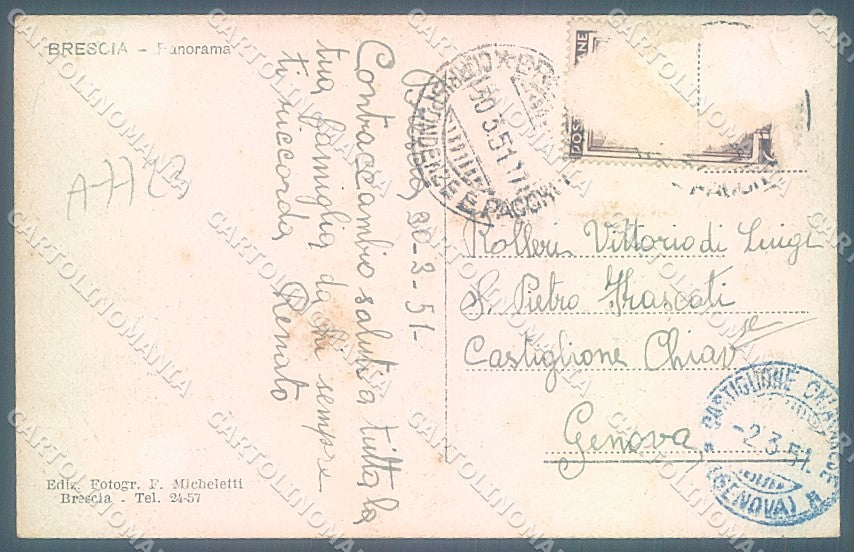 BRESCIA - Panorama
30-3-51-
Contraccambio saluti a tutta la
tua famiglia da chi sempre
ti riccorda Renato
A-77
Rolleri Vittorio di Luigi
S. Pietro Frascati
Castiglione Chiav.se
Genova
CORRISPONDENZE E PACCHI
30.3.51.17
POS
NE
CASTIGLIONE CHIAVARESE
-2.3.51.
(GENOVA)
Ediz. Fotogr. F. Micheletti
Brescia - Tel. 24-57
CARTOLINOMANIA